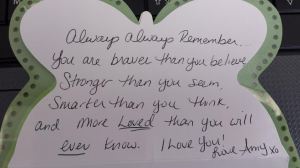 Always Always Remember.
You are braver than you believe
Stronger than you seem,
Smarter than you think,
and more Loved than you will
ever know. I Love You!
Love Amy xo